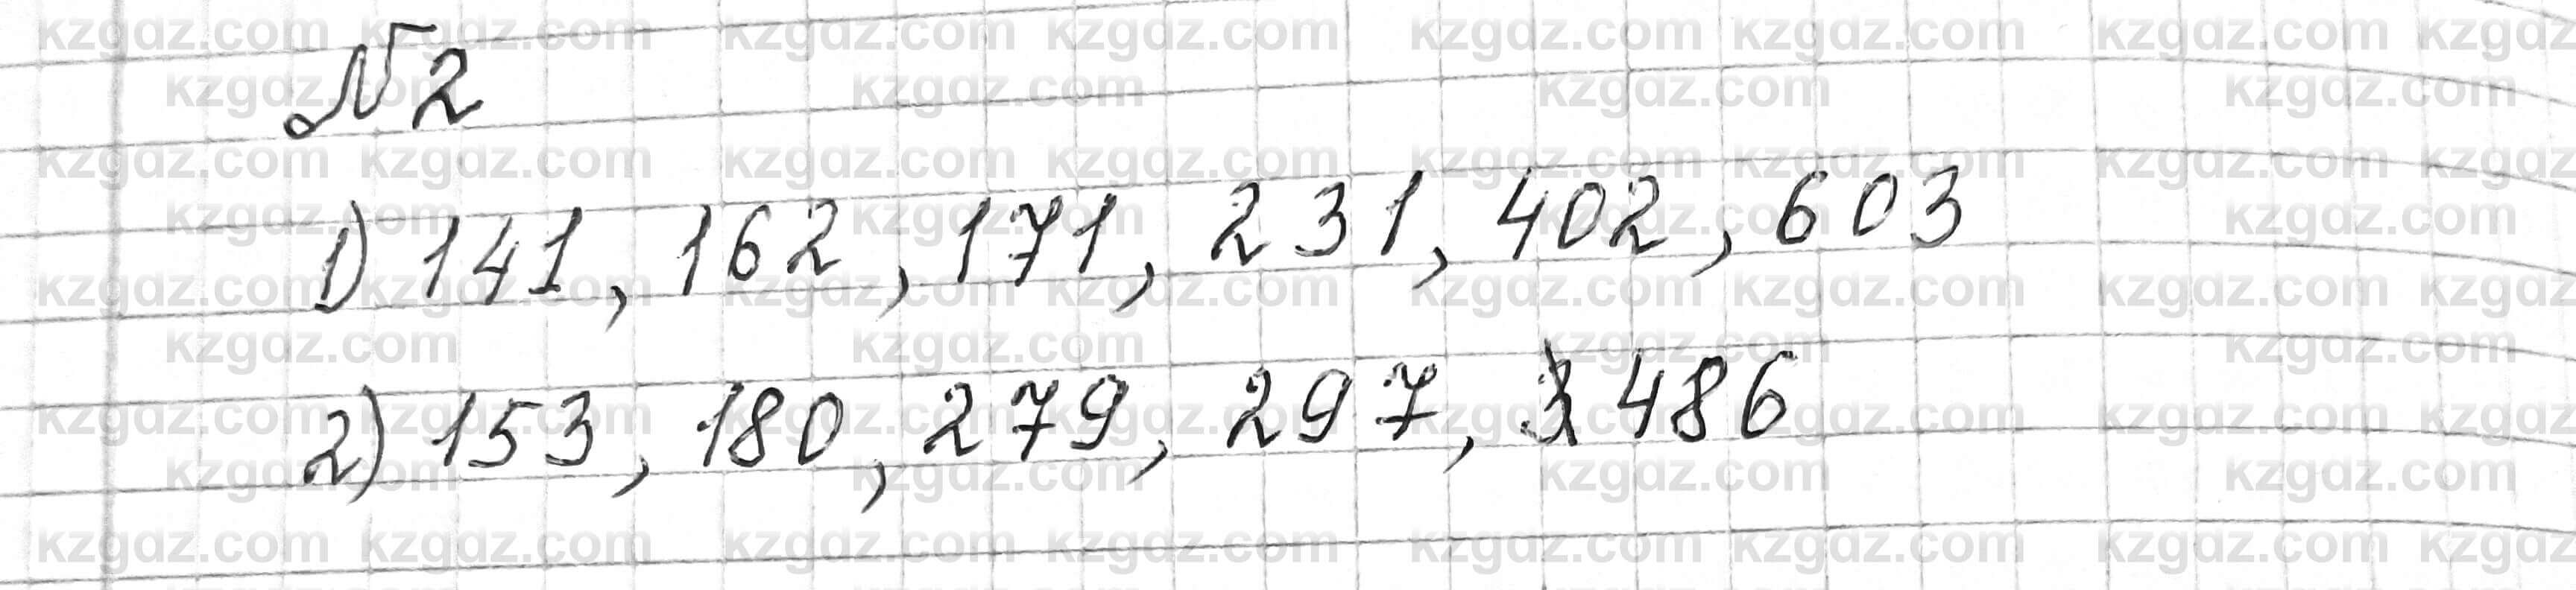 №2
1) 141, 162, 171, 231, 402, 603
2) 153, 180, 279, 297, 486